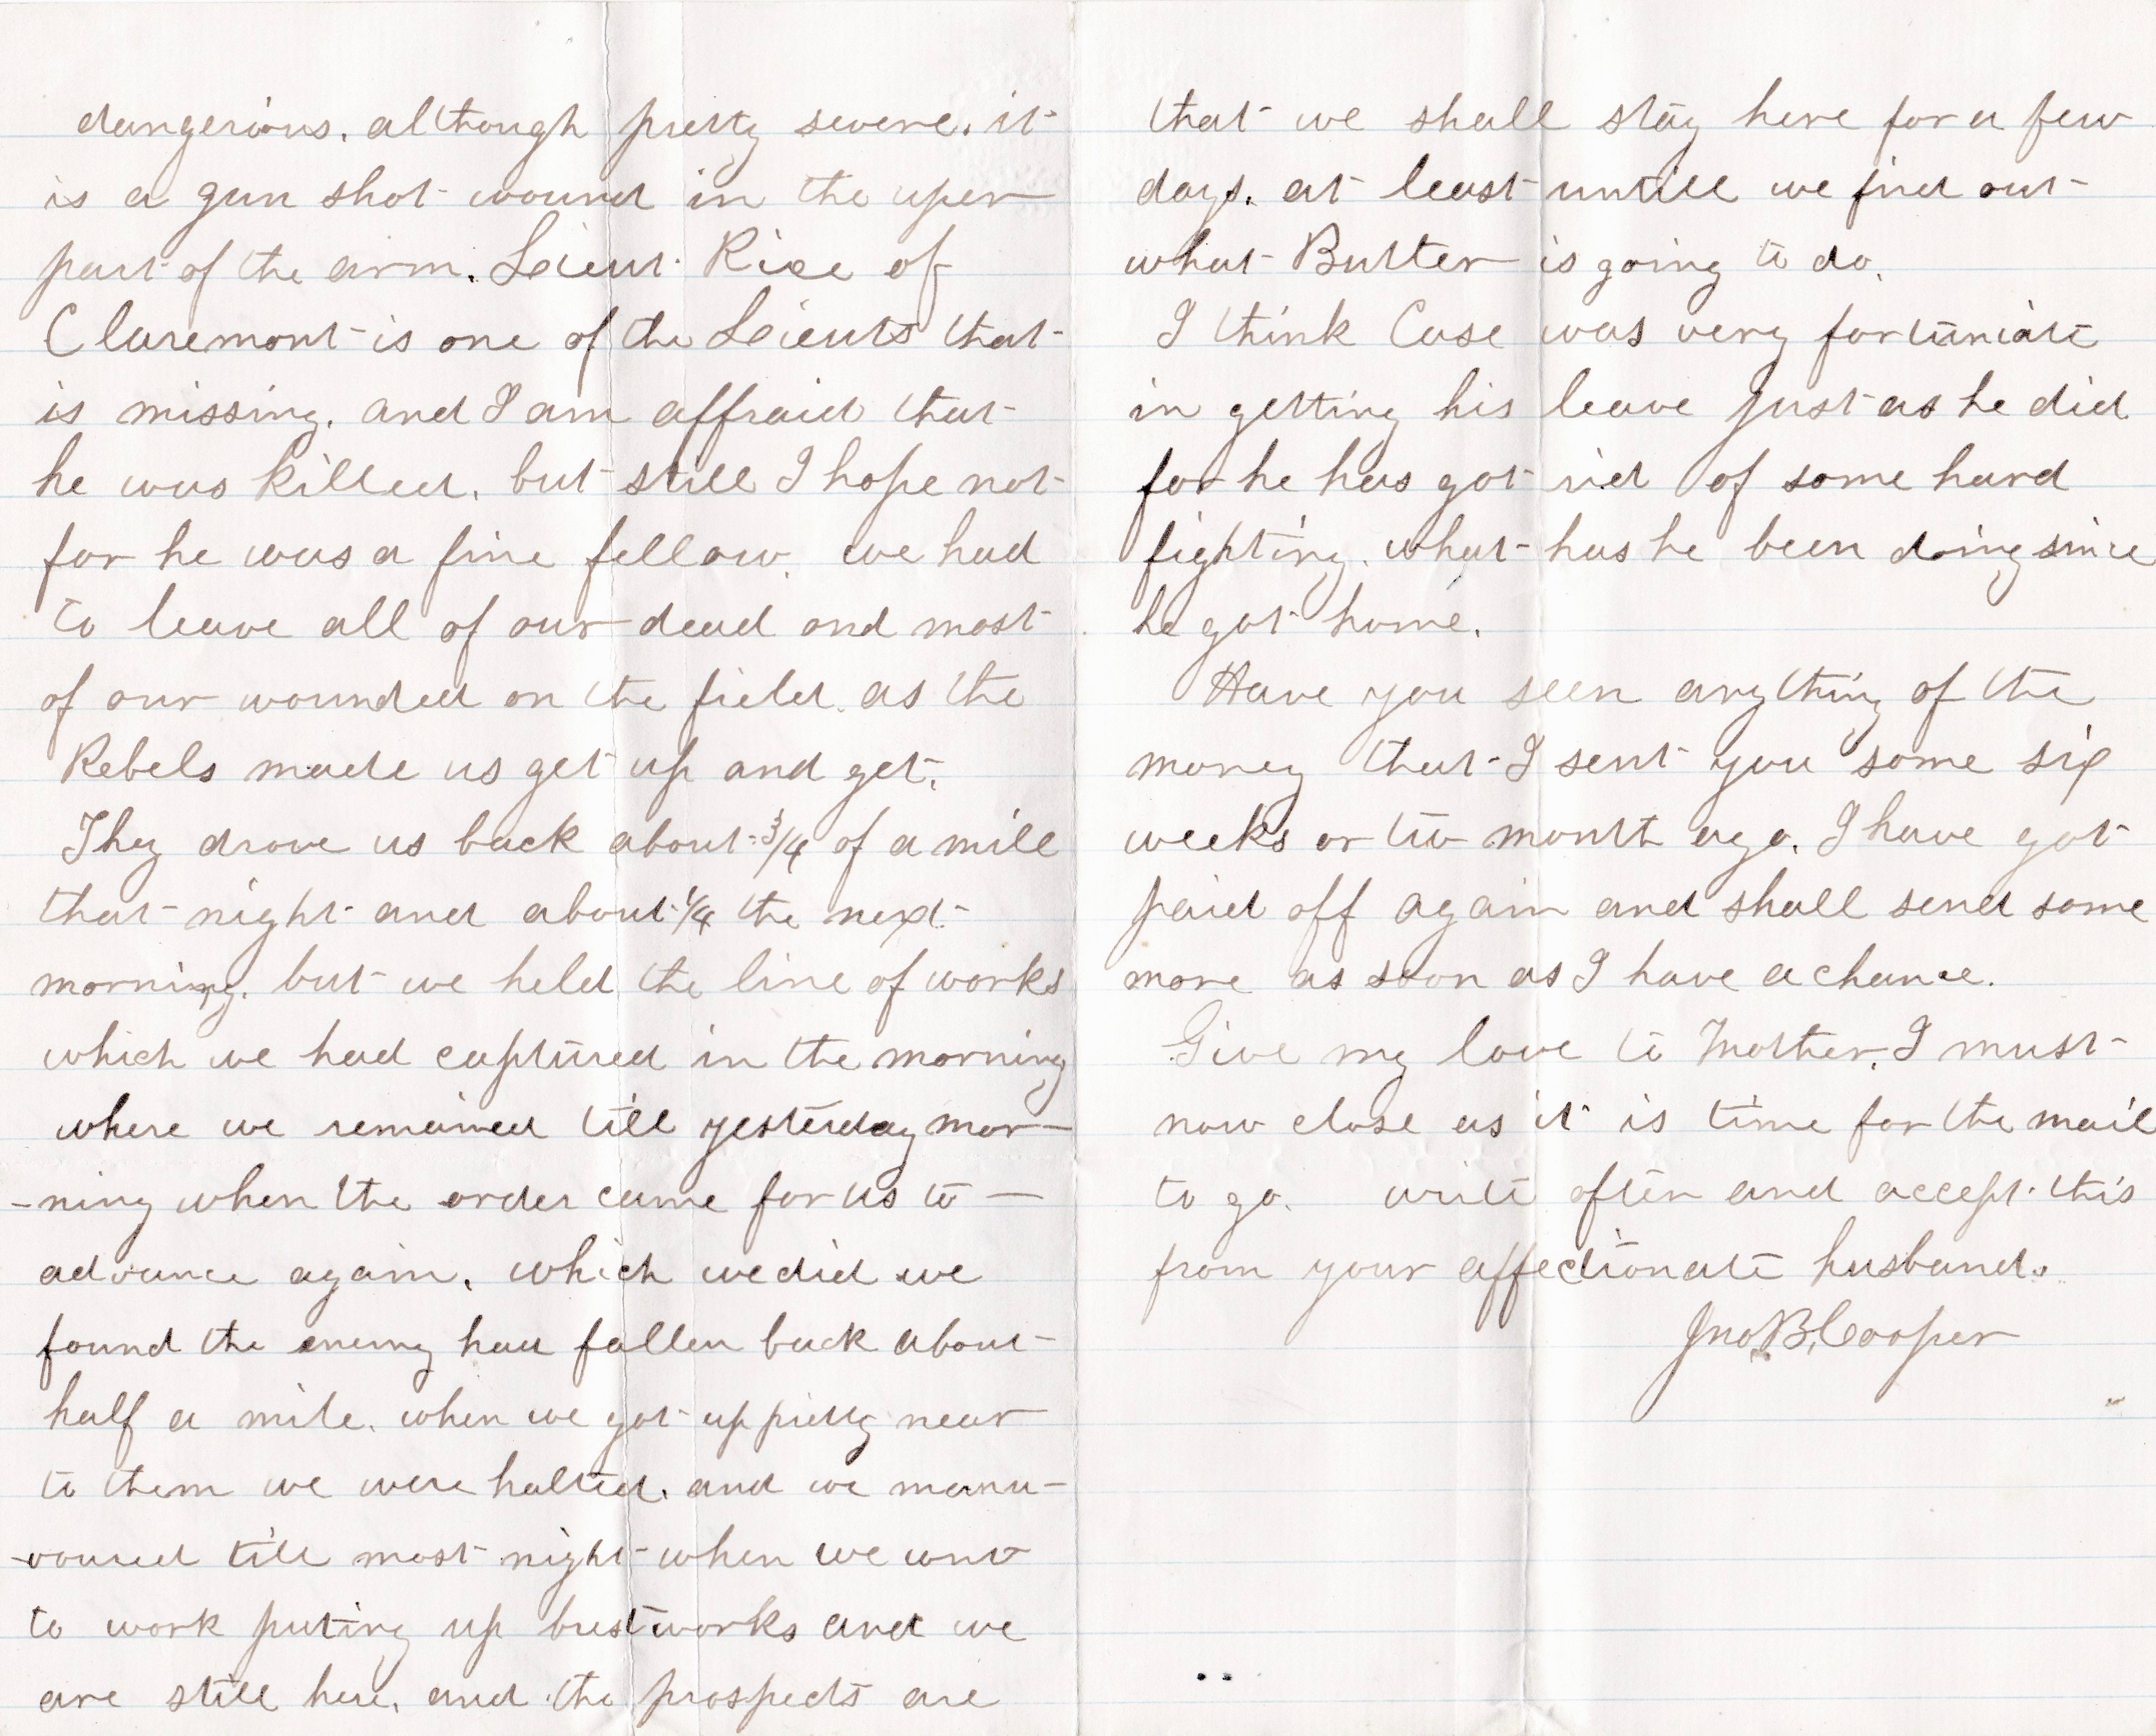 dangerious. although pretty severe. it
is a gun shot wound in the uper
part of the arm. Leieut. Rice of
Claremont is one of the Leieuts that
is missing. and I am affraid that
he was killed. but still I hope not
for he was a fine fellow. we had
to leave all of our dead and most
of our wounded on the field. as the
Rebels made us get up and get.
They drove us back about 3/4 of a mile
that night and about 1/4 the next
morning. but we held the line of works
which we had captured in the morning
where we remained till yesterday mor-
-ning when the order came for us to —
advance again. which we did we
found the enemy had fallen back about
half a mile. when we got up pretty near
to them we were halted. and we manu-
-voured till most night when we went
to work puting up brestworks and we
are still here. and the prospects are
that we shall stay here for a few
days. at least untill we find out
what Butler is going to do.
I think Case was very fortuniate
in getting his leave just as he did
for he has got rid of some hard
fighting. what has he been doing since
he got home.
Have you seen anything of the
money that I sent you some six
weeks or two month ago. I have got
paid off again and shall send some
more as soon as I have a chance.
Give my love to Mother. I must
now close as it is time for the mail
to go. write often and accept this
from your affectionate husband.
Jno. B. Cooper